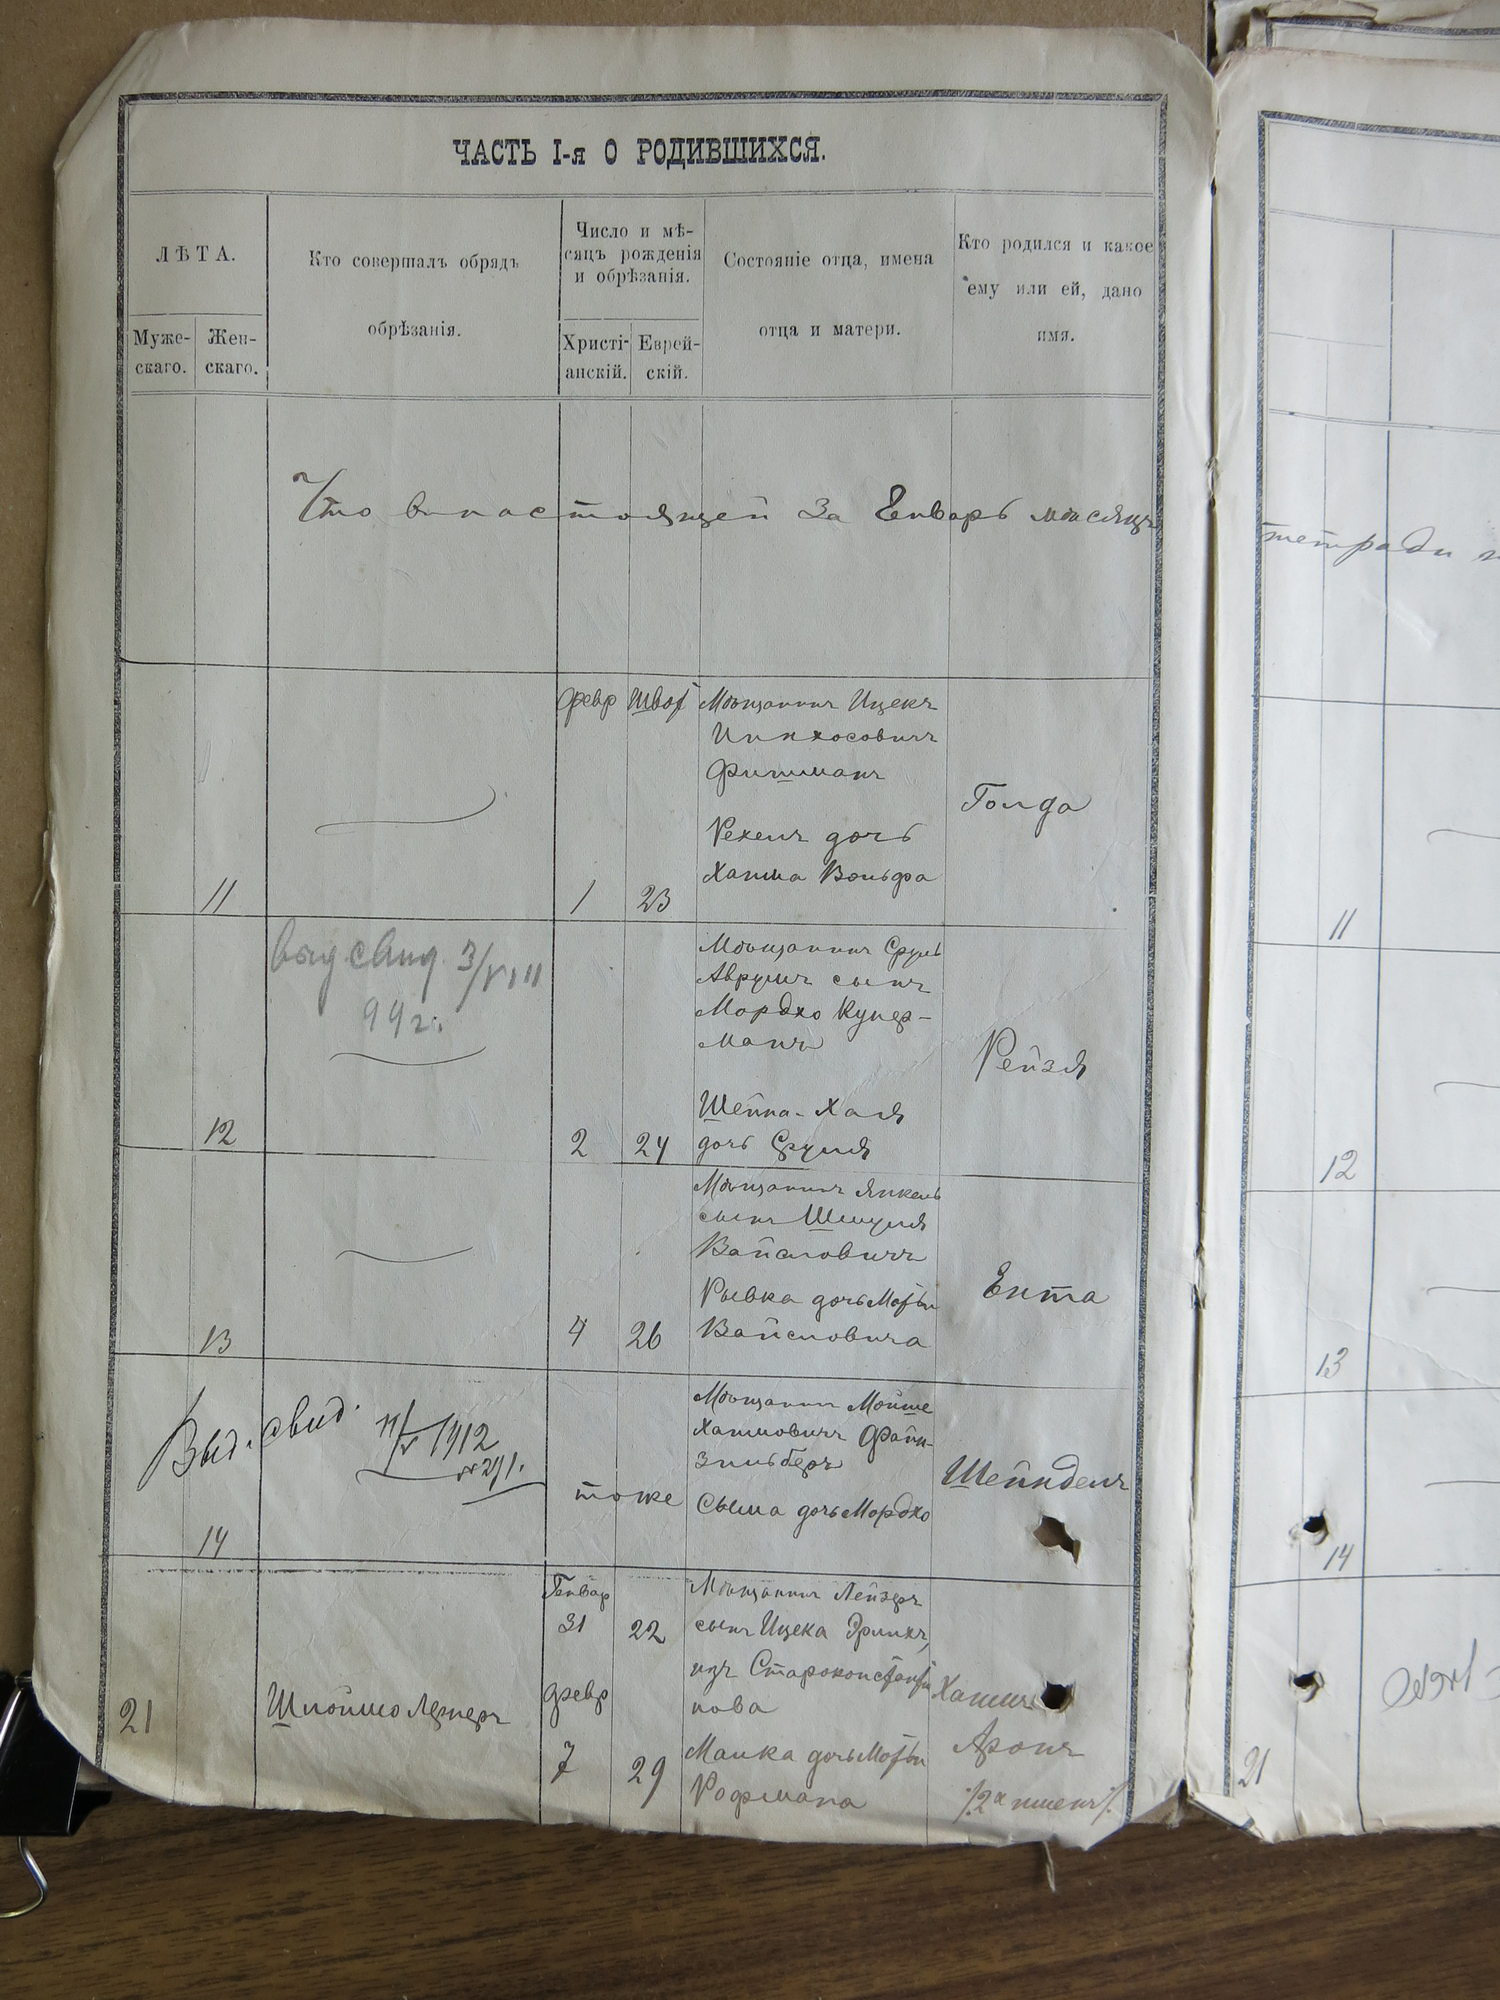 ЧАСТЬ I-я О РОДИВШИХСЯ.
ЛѢТА.
Муже-
скаго.
Жен-
скаго.
Кто совершалъ обрядъ
обрѣзанія.
Число и мѣ-
сяцъ рожденія
и обрѣзанія.
Христі-
анскій.
Еврей-
скій.
Состояніе отца, имена
отца и матери.
Кто родился и какое
ему или ей, дано
имя.
Что в настоящей за Енварь мѣсяцъ
тетради
11
Февр
1
Шват
23
Мѣщанинъ Ицекъ
Пинхосовичъ
Фишманъ
Рехель дочь
Хаима Вольфа
Голда
11
12
Выд свид. 3/VIII
99 г.
2
24
Мѣщанинъ Сруль
Аврумъ сынъ
Мордко Купер-
манъ
Шейна-Хая
дочь Сруля
Рейзя
12
13
4
26
Мѣщанинъ Янкель
сынъ Шмуля
Вайсловичъ
Рывка дочь Мотьи
Вайсловича
Ента
13
Выд. свид. 11/IV 1912
№ 291.
14
тоже
Мѣщанинъ Мойше
Хаимовичъ Файн-
зильберъ
Сыма дочь Мордко
Шейндель
14
21
Шлоймо Лернеръ
Генвар
31
22
Февр
7
29
Мѣщанинъ Лейзеръ
сынъ Ицека Эрлихъ,
изъ Староконстанти
нова
Малка дочь Мотьи
Рофмана
Хаимъ
Аронъ
21